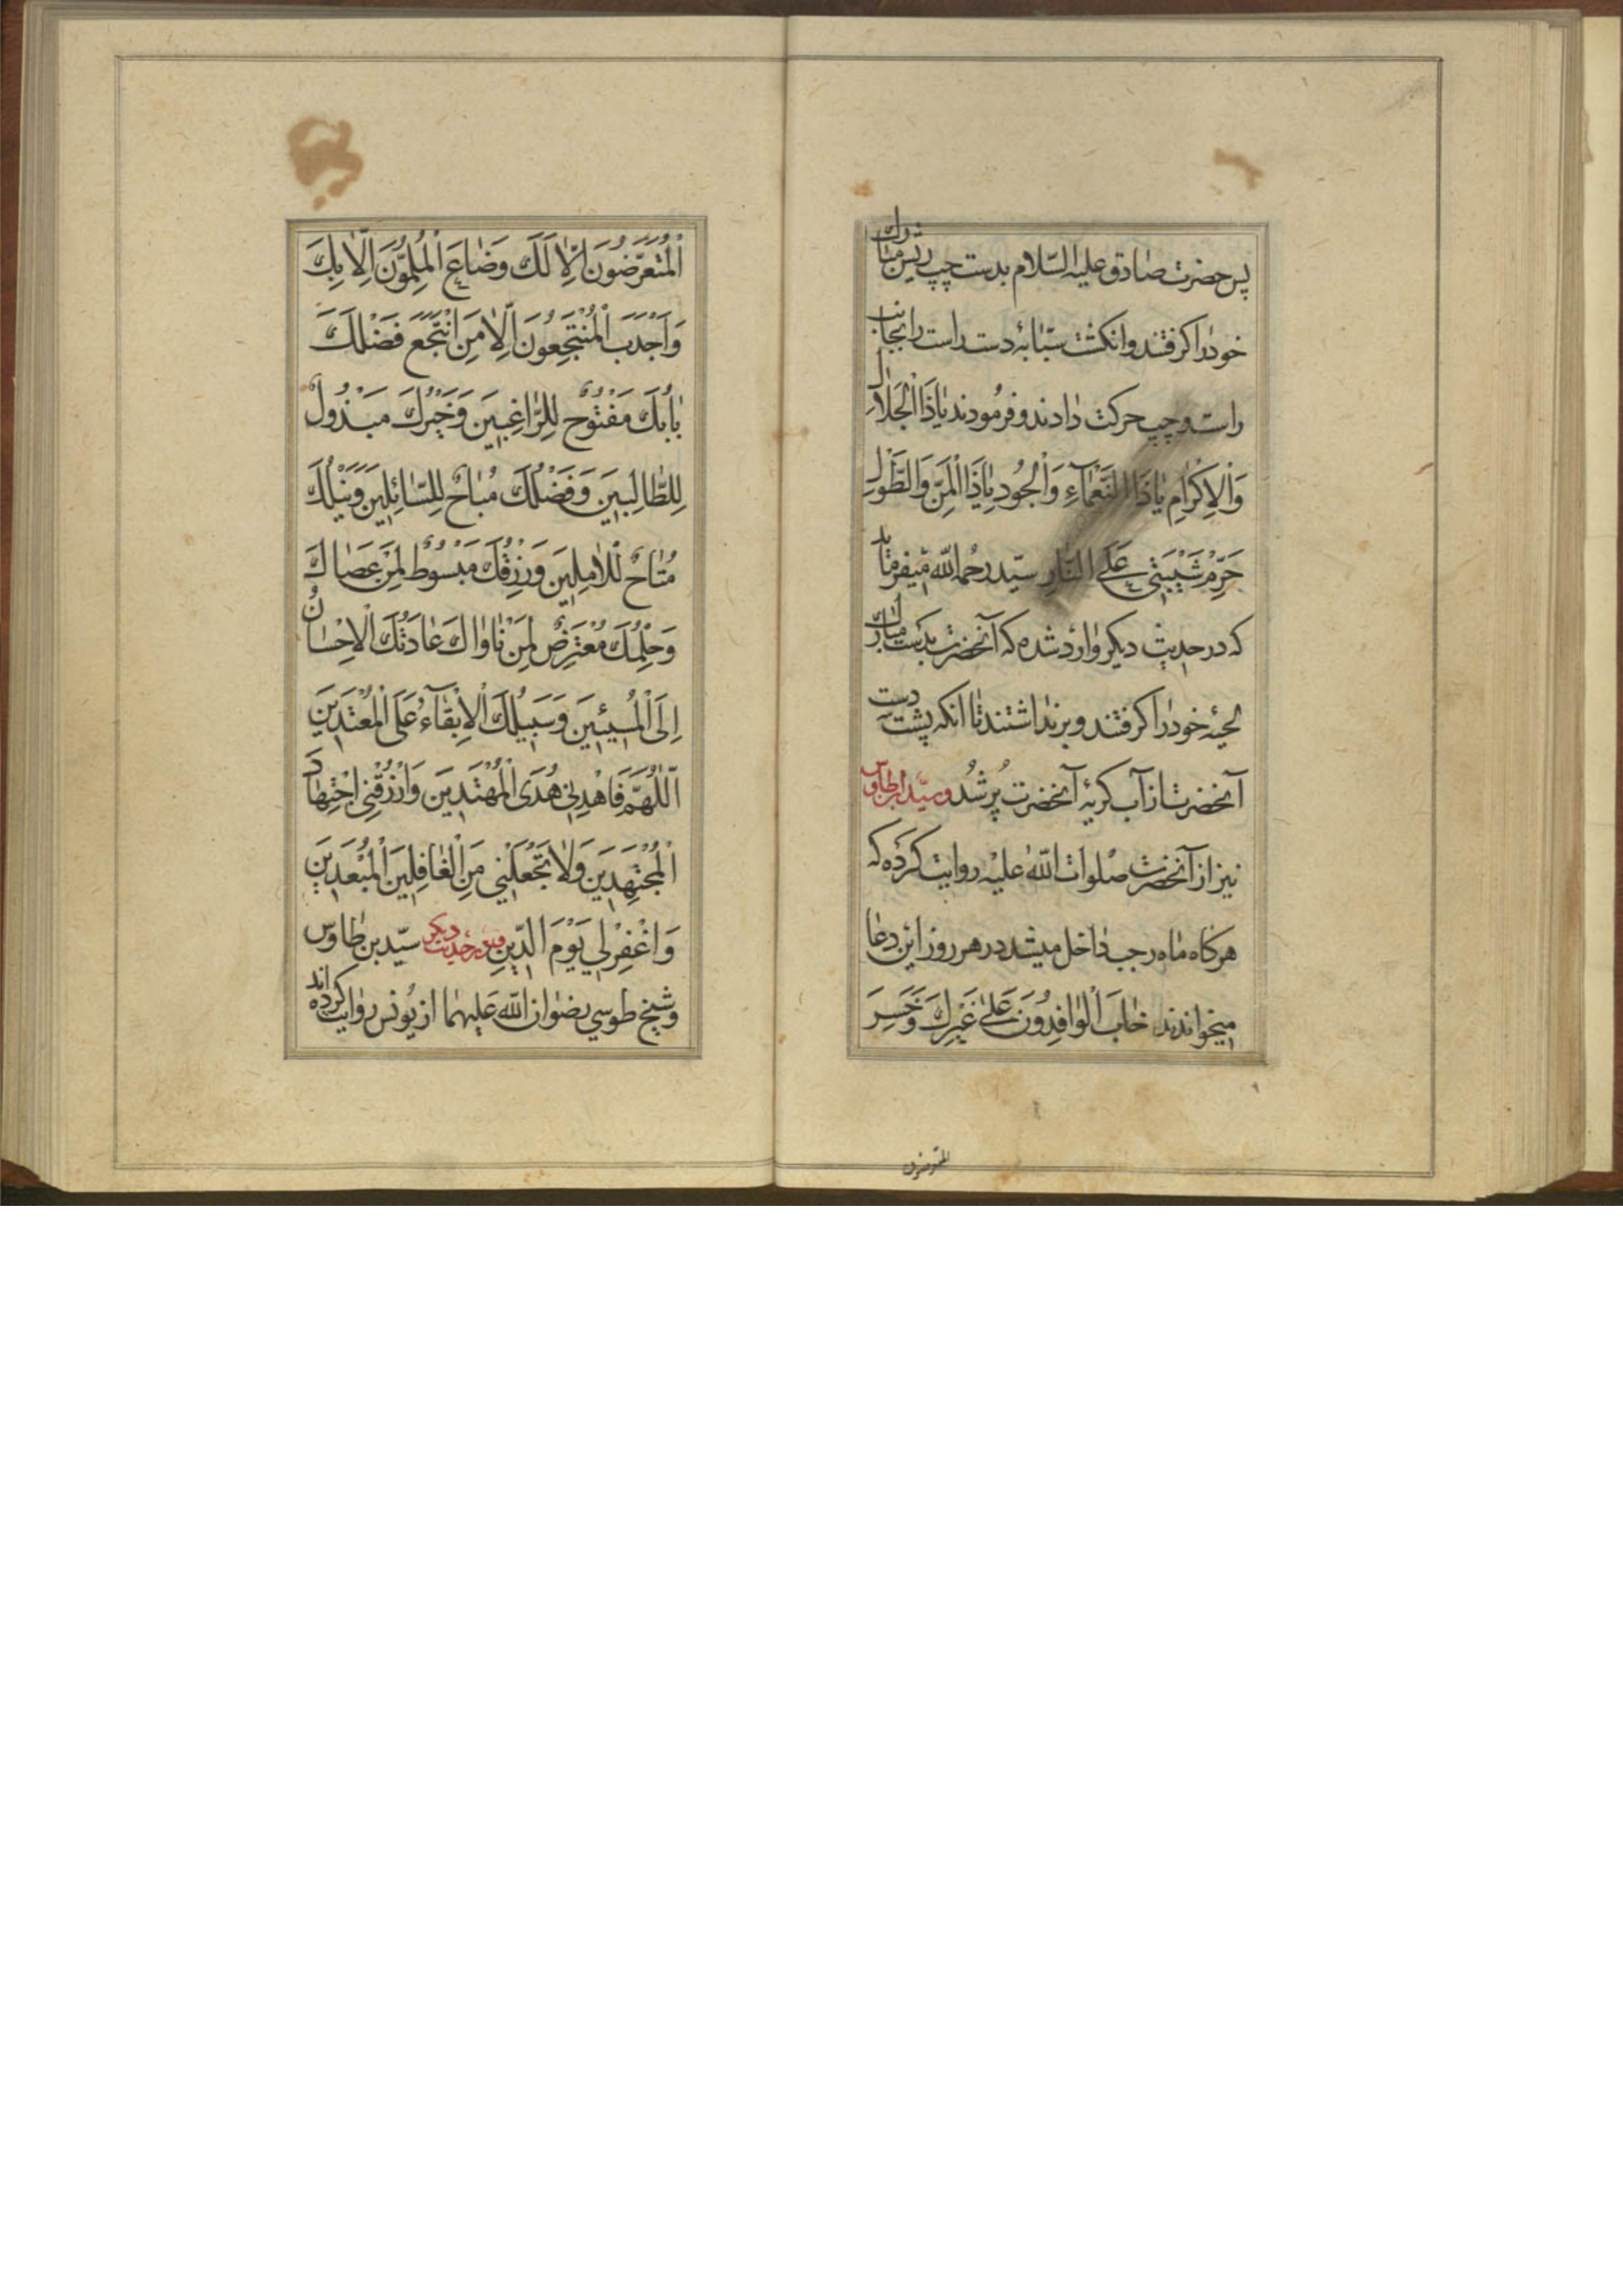 پس حضرت صادق علیه السّلام بدست چپ ریش مبارك
خود را کرفتند و انکشت سبّابهٔ دست راست را بجانب
راست و چپ حرکت دادند و فرمودند یٰا ذَا الْجَلٰالِ
وَالْاِکْرٰامِ یٰا ذَا النَّعْمٰآءِ وَالْجُودِ یٰا ذَا الْمَنِّ وَالطَّوْلِ
حَرِّمْ شَیْبَتي عَلَی النّٰارِ سیّد رحمه اللّه میفرماید
که در حدیث دیکر وارد شده که آنحضرت بدست مبارك
لحیهٔ خود را کرفتند و برنداشتند تا انکه پشت دست
آنحضرت از آب کریهٔ آنحضرت پُر شُد و سیّد ابن طاوس
نیز از آنحضرت صلوات اللّه علیه روایت کرده که
هرکاه ماه رجب داخل میشد در هر روز این دعا
میخواندند خٰابَ الْوٰافِدُونَ عَلیٰ غَیْرِكَ وَخَسِرَ
المتعرضون
اَلْمُتَعَرِّضُونَ اِلّٰا لَكَ وَضٰاعَ الْمُلِمُّونَ اِلّٰا بِكَ
وَاَجْدَبَ الْمُنْتَجِعُونَ اِلّٰا مَنِ انْتَجَعَ فَضْلَكَ
بٰابُكَ مَفْتُوحٌ لِلرّٰاغِبینَ وَخَیْرُكَ مَبْذُولٌ
لِلطّٰالِبینَ وَفَضْلُكَ مُبٰاحٌ لِلسّٰائِلینَ وَنَیْلُكَ
مُتٰاحٌ لِلْاٰمِلینَ وَرِزْقُكَ مَبْسُوطٌ لِمَنْ عَصٰاكَ
وَحِلْمُكَ مُعْتَرِضٌ لِمَنْ نٰاوٰاكَ عٰادَتُكَ الْاِحْسٰانُ
اِلَی الْمُسیئینَ وَسَبیلُكَ الْاِبْقٰآءُ عَلَی الْمُعْتَدینَ
اَللّٰهُمَّ فَاهْدِني هُدَی الْمُهْتَدینَ وَارْزُقْنِي اجْتِهٰادَ
الْمُجْتَهِدینَ وَلٰا تَجْعَلْني مِنَ الْغٰافِلینَ الْمُبْعَدینَ
وَاغْفِرْ لي یَوْمَ الدّینِ و در حدیث دیکر سیّد بن طاوس
و شیخ طوسي رضوان اللّه علیهما از یونس روایت کرده اند